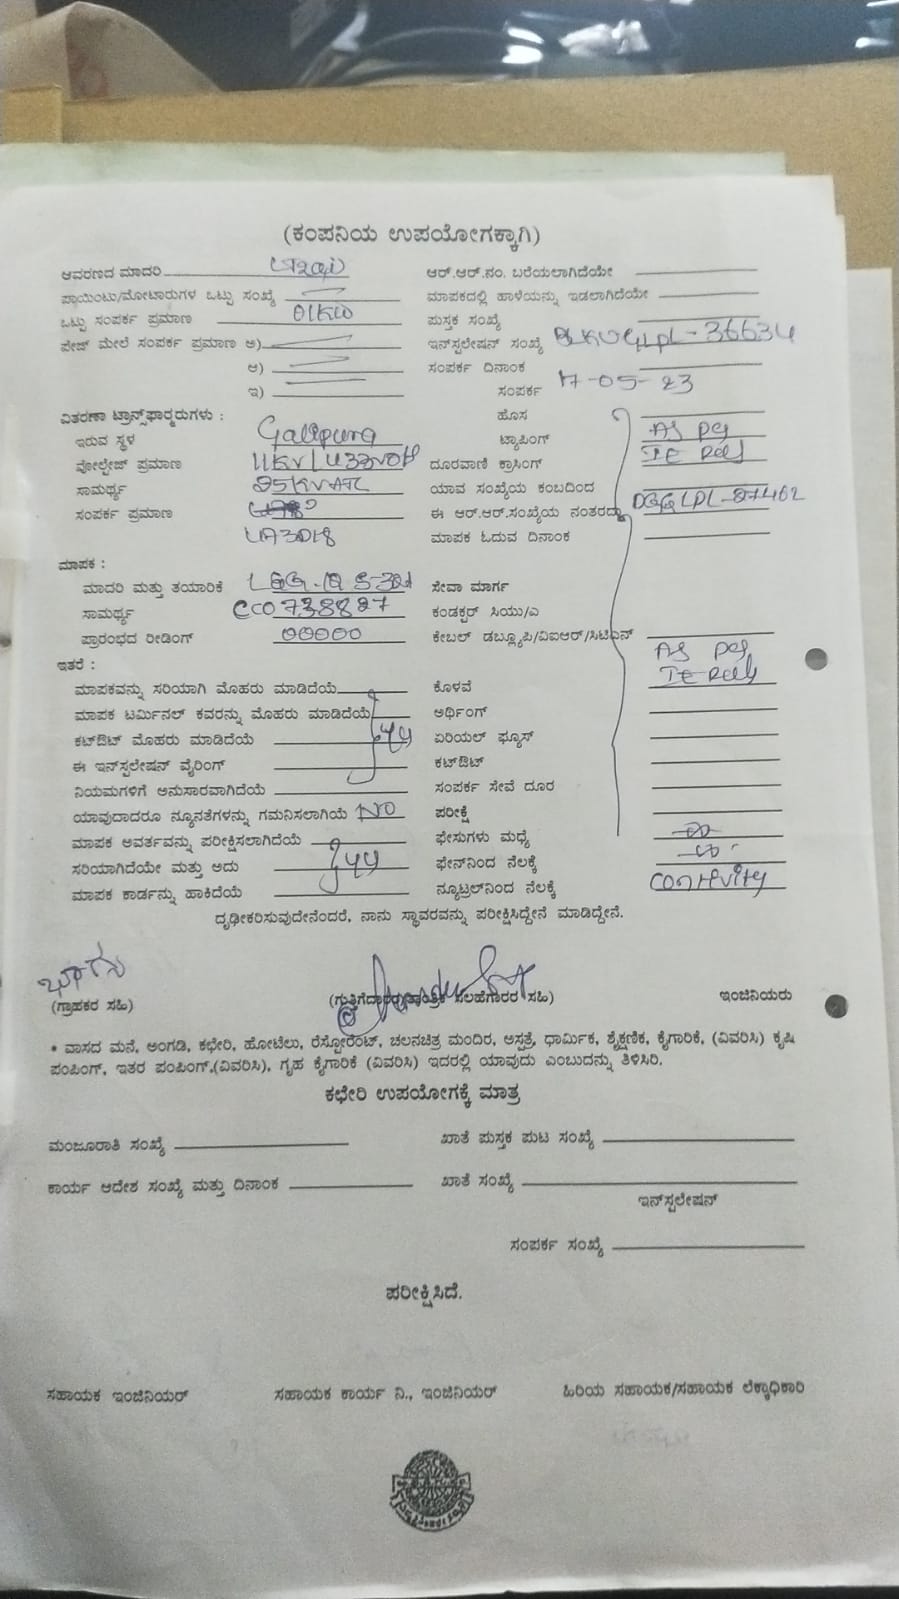 (ಕಂಪನಿಯ ಉಪಯೋಗಕ್ಕಾಗಿ)
ಆವರಣದ ಮಾದರಿ
ಆರ್.ಆರ್.ನಂ. ಬರೆಯಲಾಗಿದೆಯೇ
ಪಾಯಿಂಟು/ಮೋಟಾರುಗಳ ಒಟ್ಟು ಸಂಖ್ಯೆ
ಮಾಪಕದಲ್ಲಿ ಹಾಳೆಯನ್ನು ಇಡಲಾಗಿದೆಯೇ
ಒಟ್ಟು ಸಂಪರ್ಕ ಪ್ರಮಾಣ 01KW
ಪುಸ್ತಕ ಸಂಖ್ಯೆ
ಪೇಜ್ ಮೇಲೆ ಸಂಪರ್ಕ ಪ್ರಮಾಣ ಅ)
ಇನ್‌ಸ್ಟಲೇಷನ್ ಸಂಖ್ಯೆ 36634
ಆ)
ಸಂಪರ್ಕ ದಿನಾಂಕ
ಇ)
ಸಂಪರ್ಕ 17-05-23
ವಿತರಣಾ ಟ್ರಾನ್ಸ್‌ಫಾರ್ಮರುಗಳು :
ಹೊಸ
ಇರುವ ಸ್ಥಳ Galipura
ಟ್ಯಾಪಿಂಗ್ As per
ವೋಲ್ಟೇಜ್ ಪ್ರಮಾಣ 11KV/433Volt
ದೂರವಾಣಿ ಕ್ರಾಸಿಂಗ್ IE Rules
ಸಾಮರ್ಥ್ಯ 25KVA
ಯಾವ ಸಂಖ್ಯೆಯ ಕಂಬದಿಂದ
ಸಂಪರ್ಕ ಪ್ರಮಾಣ
ಈ ಆರ್.ಆರ್.ಸಂಖ್ಯೆಯ ನಂತರದ್ದು
ಮಾಪಕ ಓದುವ ದಿನಾಂಕ
ಮಾಪಕ :
ಮಾದರಿ ಮತ್ತು ತಯಾರಿಕೆ
ಸೇವಾ ಮಾರ್ಗ
ಸಾಮರ್ಥ್ಯ
ಕಂಡಕ್ಟರ್ ಸಿಯು/ಎ
ಪ್ರಾರಂಭದ ರೀಡಿಂಗ್ 00000
ಕೇಬಲ್ ಡಬ್ಲ್ಯೂಪಿ/ವಿಐಆರ್/ಸಿಟಿಎಸ್
ಇತರೆ :
As per
ಮಾಪಕವನ್ನು ಸರಿಯಾಗಿ ಮೊಹರು ಮಾಡಿದೆಯೆ
ಕೊಳವೆ IE Rules
ಮಾಪಕ ಟರ್ಮಿನಲ್ ಕವರನ್ನು ಮೊಹರು ಮಾಡಿದೆಯೆ
ಅರ್ಥಿಂಗ್
ಕಟ್‌ಔಟ್ ಮೊಹರು ಮಾಡಿದೆಯೆ
ಏರಿಯಲ್ ಫ್ಯೂಸ್
ಈ ಇನ್‌ಸ್ಟಲೇಷನ್ ವೈರಿಂಗ್
ಕಟ್‌ಔಟ್
ನಿಯಮಗಳಿಗೆ ಅನುಸಾರವಾಗಿದೆಯೆ
ಸಂಪರ್ಕ ಸೇವೆ ದೂರ
ಯಾವುದಾದರೂ ನ್ಯೂನತೆಗಳನ್ನು ಗಮನಿಸಲಾಗಿಯೆ NO
ಪರೀಕ್ಷೆ
ಮಾಪಕ ಅವರ್ತವನ್ನು ಪರೀಕ್ಷಿಸಲಾಗಿದೆಯೆ
ಫೇಸುಗಳು ಮಧ್ಯೆ
ಸರಿಯಾಗಿದೆಯೇ ಮತ್ತು ಅದು
ಫೇಸ್‌ನಿಂದ ನೆಲಕ್ಕೆ
ಮಾಪಕ ಕಾರ್ಡನ್ನು ಹಾಕಿದೆಯೆ
ನ್ಯೂಟ್ರಲ್‌ನಿಂದ ನೆಲಕ್ಕೆ
ದೃಢೀಕರಿಸುವುದೇನೆಂದರೆ, ನಾನು ಸ್ಥಾವರವನ್ನು ಪರೀಕ್ಷಿಸಿದ್ದೇನೆ ಮಾಡಿದ್ದೇನೆ.
(ಗ್ರಾಹಕರ ಸಹಿ)
ಸಲಹೆಗಾರರ ಸಹಿ)
ಇಂಜಿನಿಯರು
* ವಾಸದ ಮನೆ, ಅಂಗಡಿ, ಕಛೇರಿ, ಹೋಟೆಲು, ರೆಸ್ಟೋರೆಂಟ್, ಚಲನಚಿತ್ರ ಮಂದಿರ, ಅಸ್ಪತ್ರೆ, ಧಾರ್ಮಿಕ, ಶೈಕ್ಷಣಿಕ, ಕೈಗಾರಿಕೆ, (ವಿವರಿಸಿ) ಕೃಷಿ
ಪಂಪಿಂಗ್, ಇತರ ಪಂಪಿಂಗ್,(ವಿವರಿಸಿ), ಗೃಹ ಕೈಗಾರಿಕೆ (ವಿವರಿಸಿ) ಇದರಲ್ಲಿ ಯಾವುದು ಎಂಬುದನ್ನು ತಿಳಿಸಿರಿ.
ಕಛೇರಿ ಉಪಯೋಗಕ್ಕೆ ಮಾತ್ರ
ಮಂಜೂರಾತಿ ಸಂಖ್ಯೆ
ಖಾತೆ ಪುಸ್ತಕ ಪುಟ ಸಂಖ್ಯೆ
ಕಾರ್ಯ ಆದೇಶ ಸಂಖ್ಯೆ ಮತ್ತು ದಿನಾಂಕ
ಖಾತೆ ಸಂಖ್ಯೆ
ಇನ್‌ಸ್ಟಲೇಷನ್
ಸಂಪರ್ಕ ಸಂಖ್ಯೆ
ಪರೀಕ್ಷಿಸಿದೆ.
ಸಹಾಯಕ ಇಂಜಿನಿಯರ್
ಸಹಾಯಕ ಕಾರ್ಯ ನಿ., ಇಂಜಿನಿಯರ್
ಹಿರಿಯ ಸಹಾಯಕ/ಸಹಾಯಕ ಲೆಕ್ಕಾಧಿಕಾರಿ